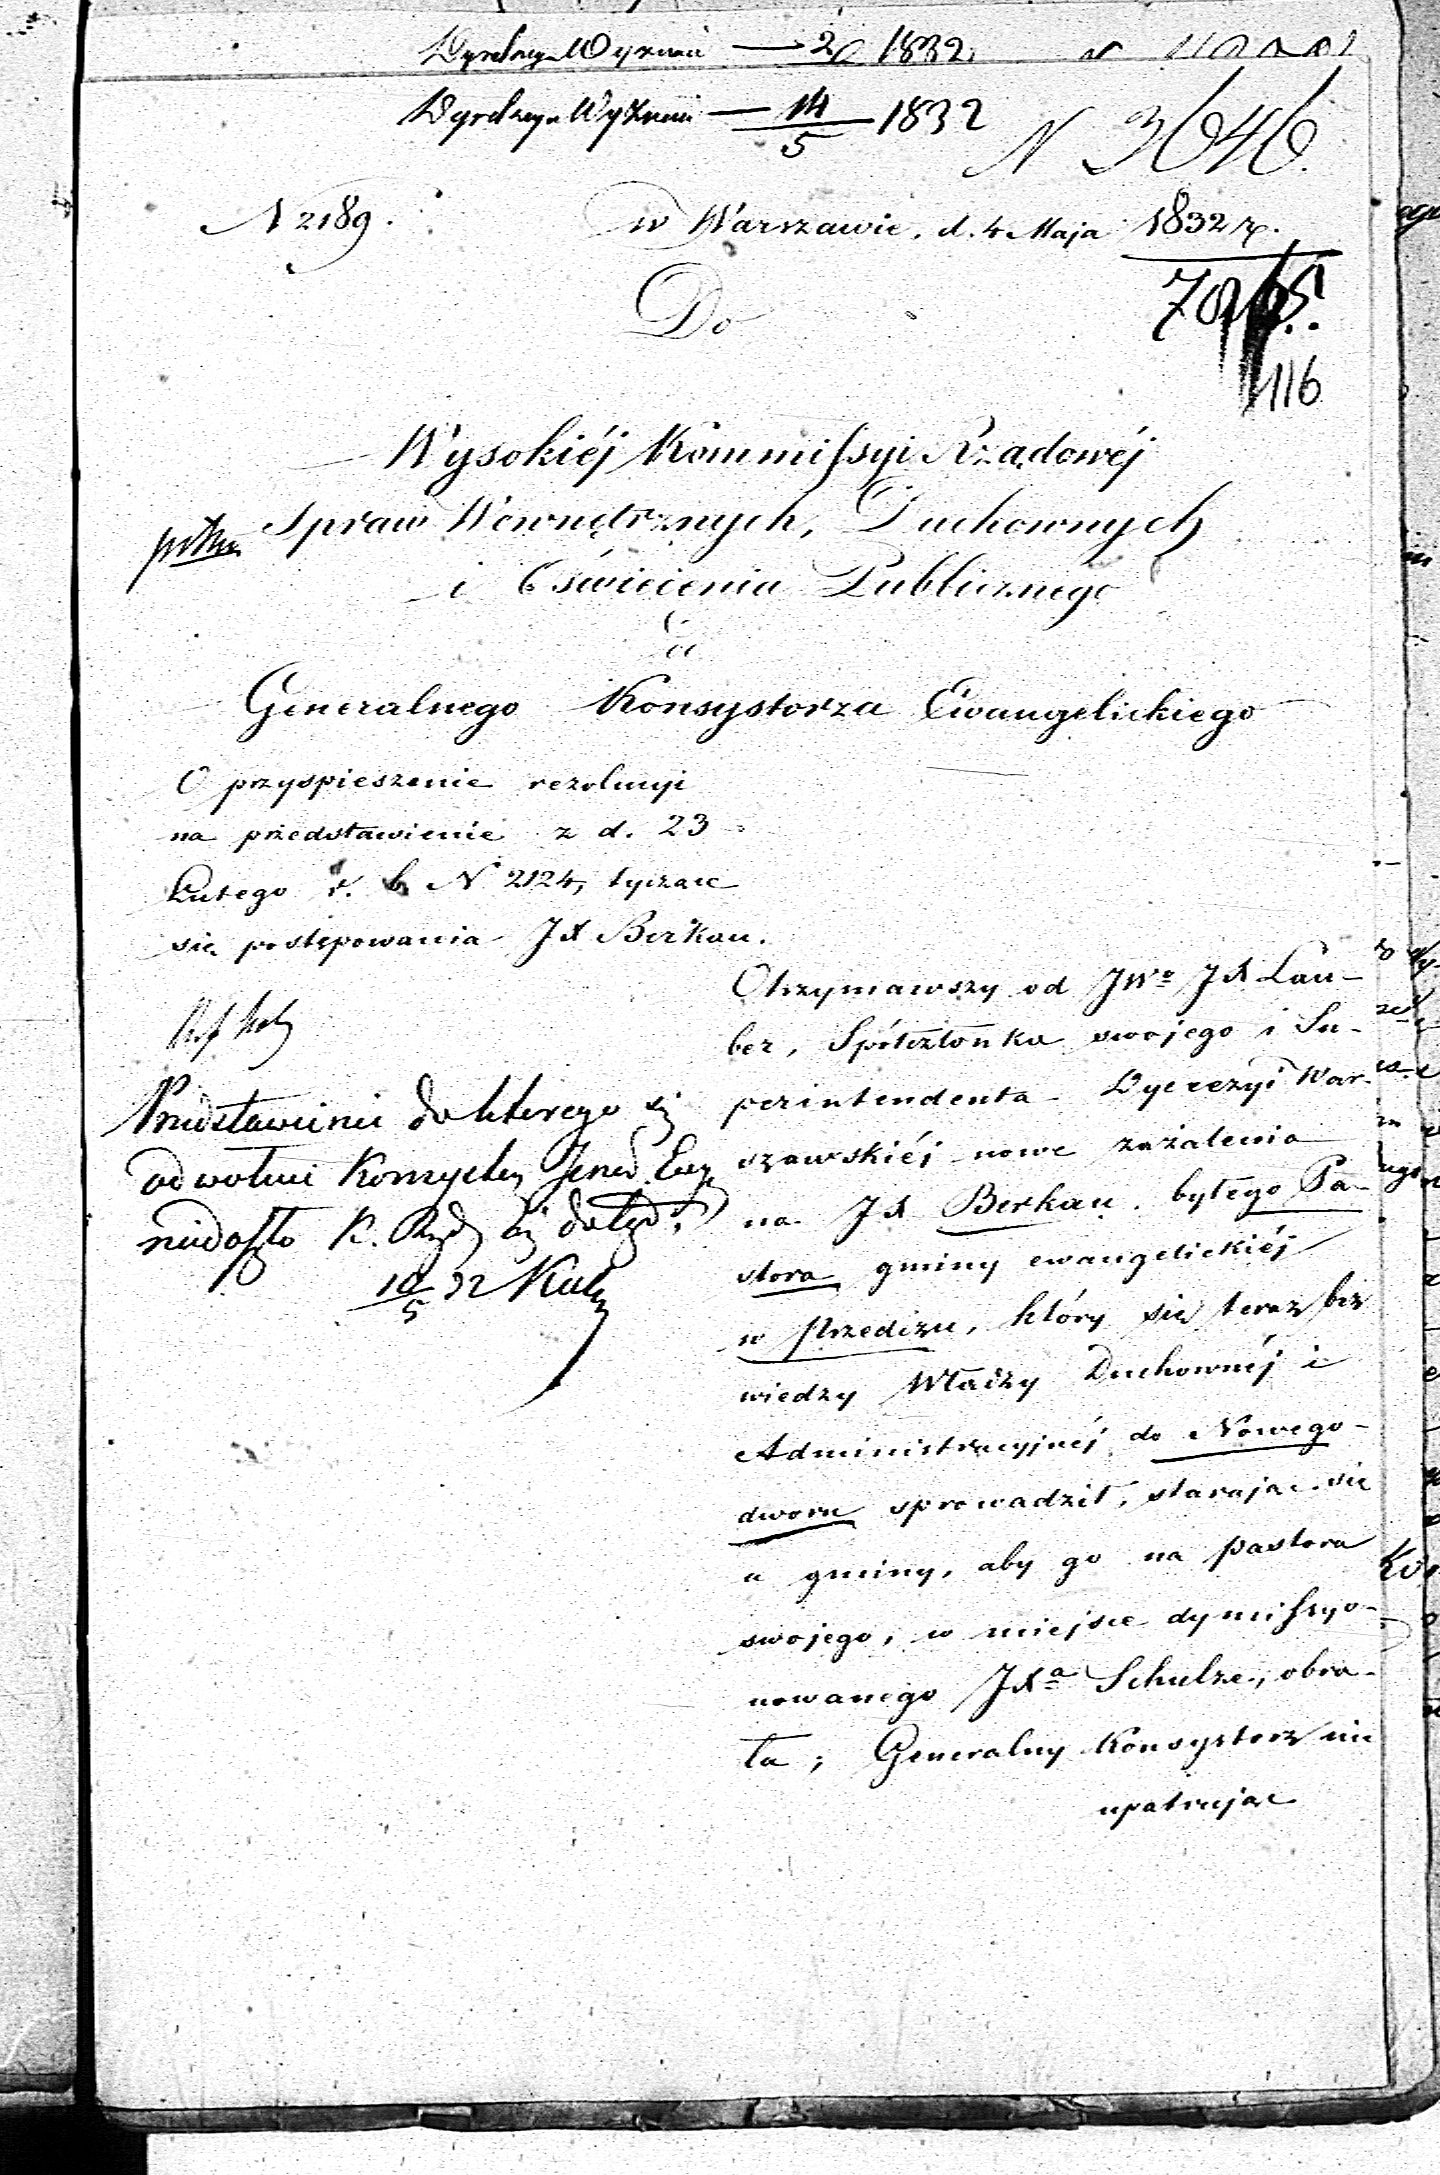 Dyrekcya Wyznań — 14/5 1832
N 3646.
N 2189.
w Warszawie, d. 4 Maja 1832 r.
Do
116
Wysokiéj Kommissyi Rządowéj
Spraw Wewnętrznych, Duchownych
i Oświecenia Publicznego
Generalnego Konsystorza Ewangelickiego
O przyspieszenie rezolucyi
na przedstawienie z d. 23
Lutego r. b. N 2124, tyczące
się postępowania JX Berkau.
Przedstawienie do którego się
odwołuie Konsystorz Gener. Ewg.
niedoszło K. Rząd.
10/5 32
Otrzymawszy od JWo JX Lau-
ber, Spółczłonka swojego i Su-
perintendenta Dyecezyi War-
szawskiéj nowe zażalenia
na JX Berkau, byłego Pa-
stora gminy ewangelickiéj
w Przedczu, który się teraz bez
wiedzy Władzy Duchownéj i
Administracyjnéj do Nowego-
dworu sprowadził, starając się
u gminy, aby go na pastora
swojego, w miejsce dymissyo-
nowanego JXa Schulze, obra-
ła; Generalny Konsystorz nie
upatrując